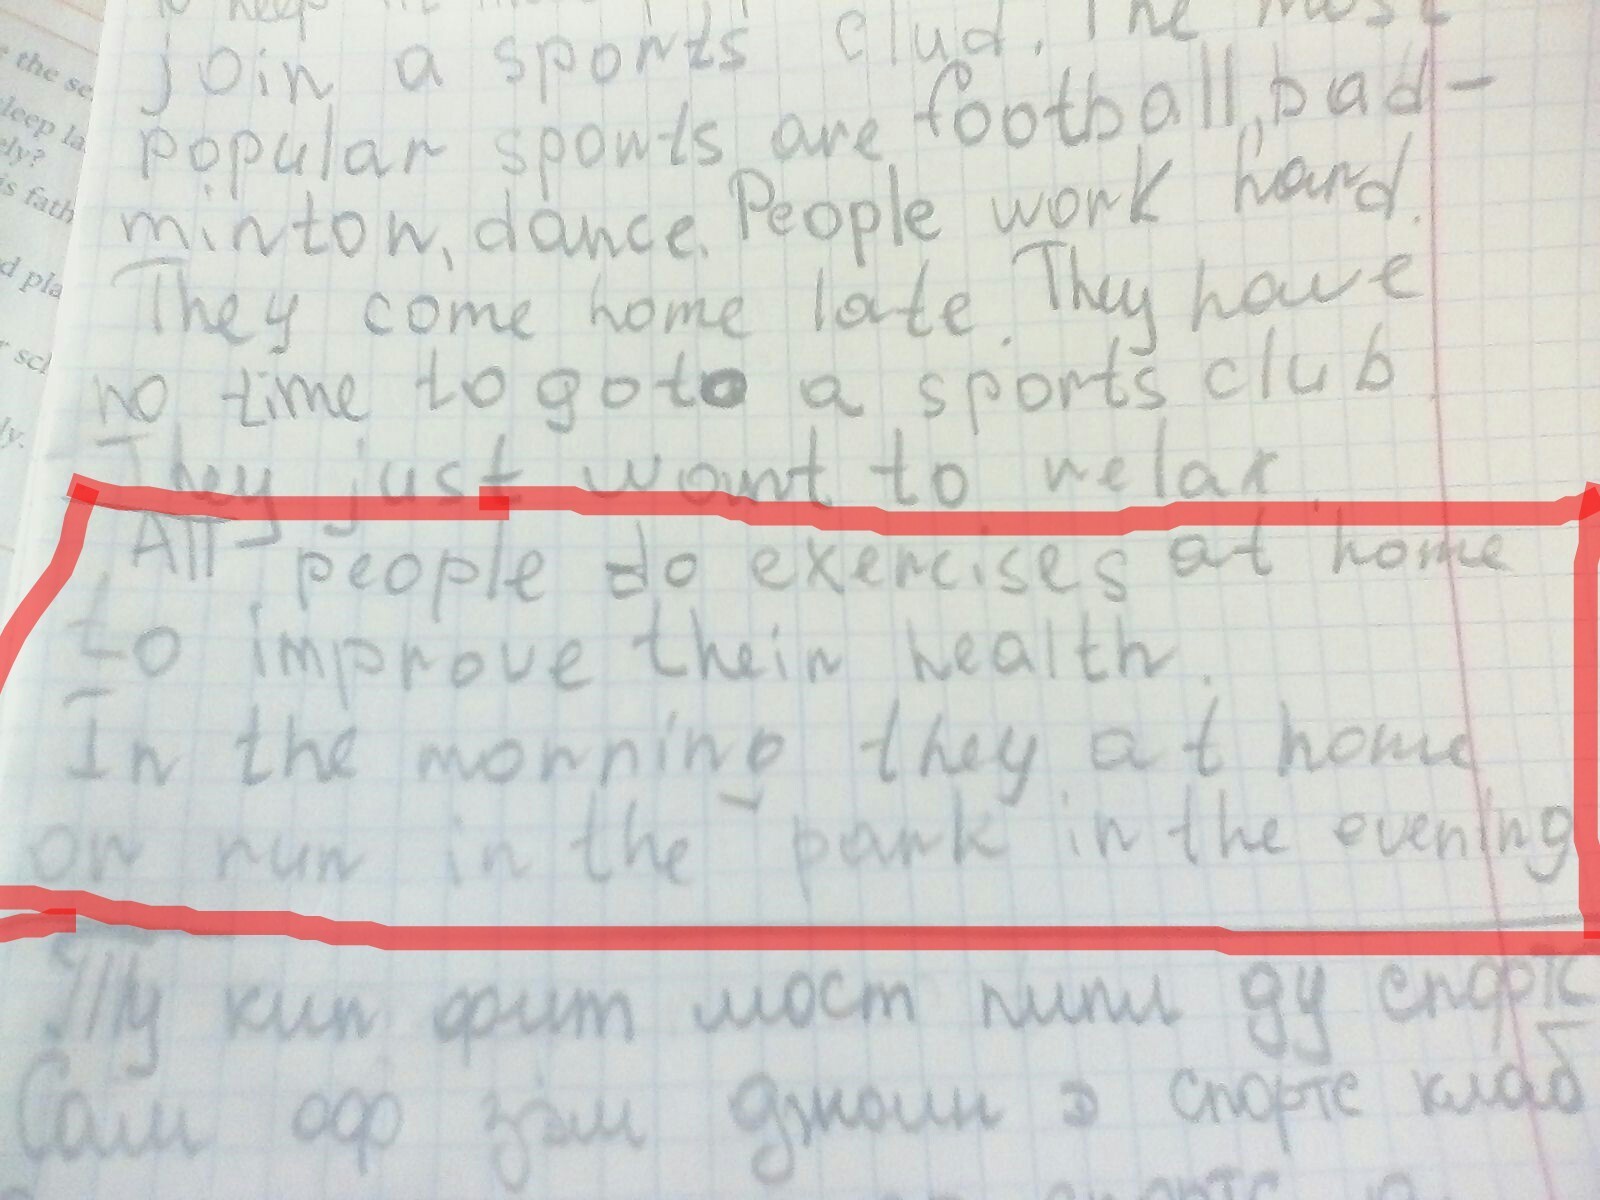 the se
join a sports clud. The most
leep la
popular sports are football, bad-
ely?
is fath
minton, dance. People work hard.
d pla
They come home late. They have
r sch
no time to go to a sports club
ly.
They just want to relax.
All people do exercises at home
to improve their health.
In the morning they at home
or run in the park in the evening
Ту кип фит мост пипл ду спортс
Сам оф зэм джоин э спортс клаб